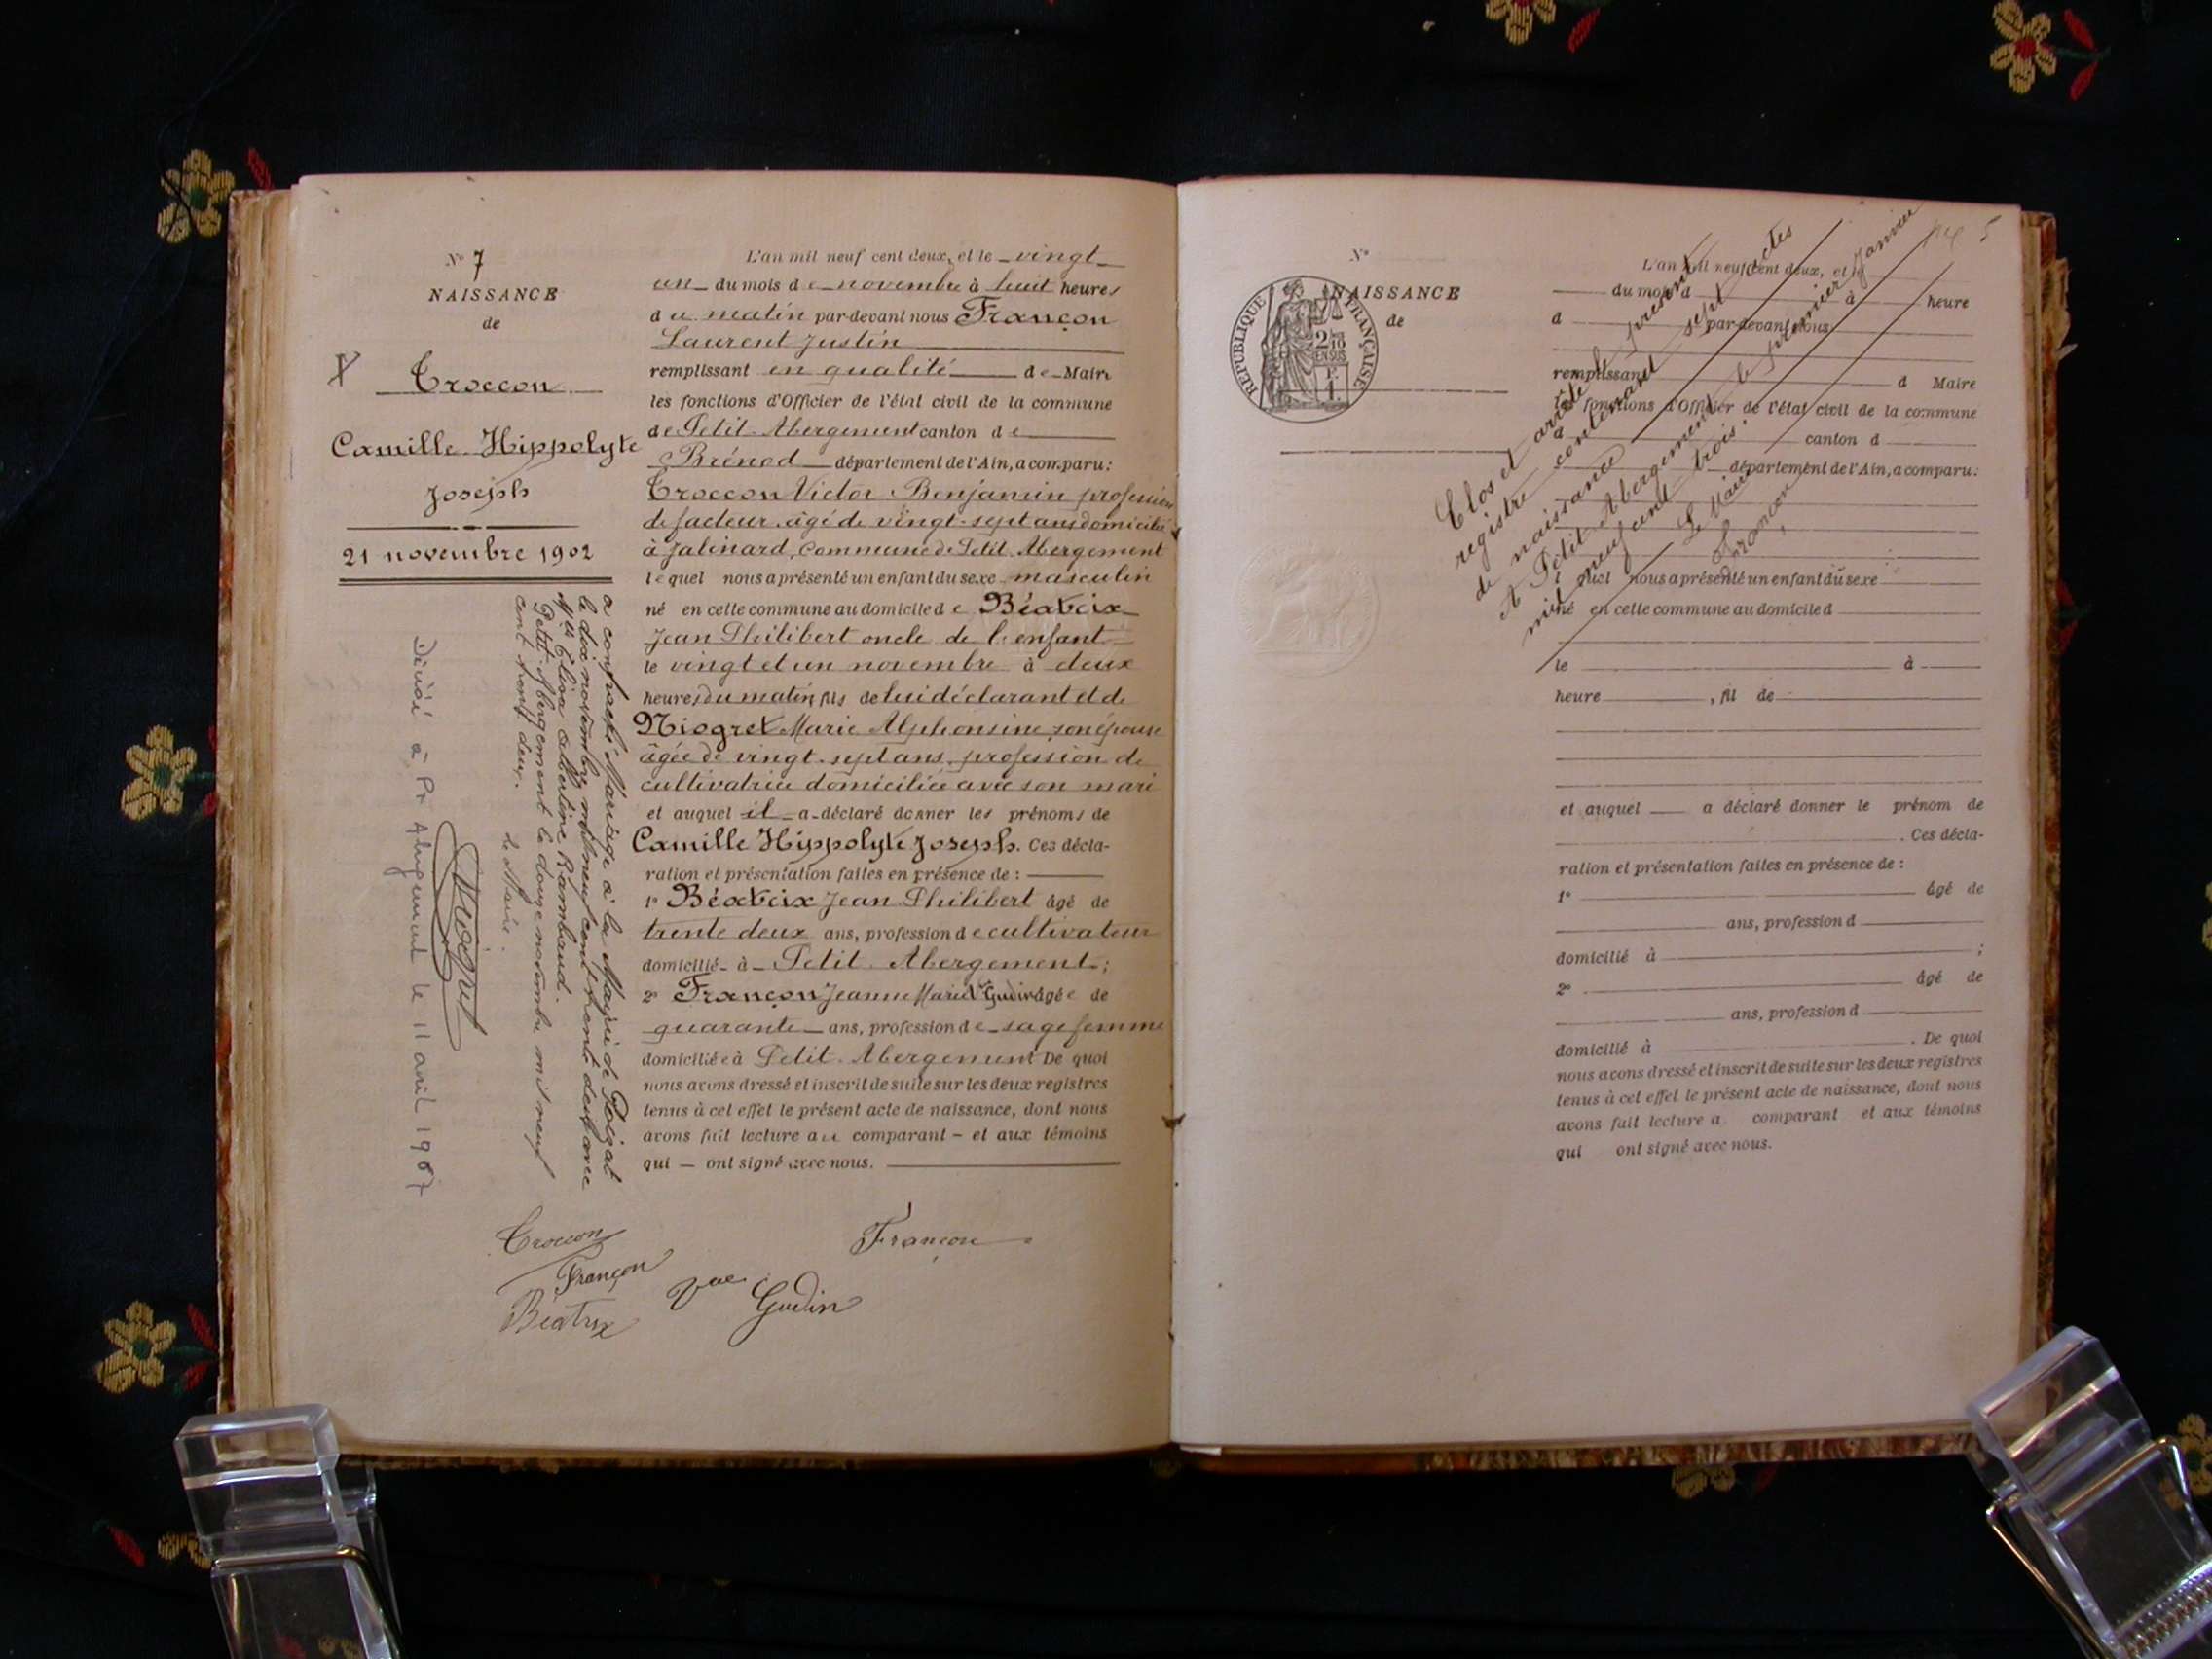 N° 7
NAISSANCE
de
Troccon
Camille Hippolyte
Joseph
21 novembre 1902
a contracté Mariage à la Mairie de Poizat
le dix novembre mil neuf cent trente deux avec
Mlle Elisa Albertine Rambaud.
Petit-Abergement le douze novembre mil neuf
cent trente deux.
le Maire.
Décédé à Pt Abergement le 11 avril 1987
L'an mil neuf cent deux, et le vingt
un du mois de novembre à huit heures
du matin par-devant nous Françon
Laurent Justin
remplissant en qualité de Maire
les fonctions d'Officier de l'état civil de la commune
de Petit-Abergement canton de
Brénod département de l'Ain, a comparu:
Troccon Victor Benjamin profession
de facteur âgé de vingt-sept ans domicilié
à Jalinard, Commune de Petit-Abergement
lequel nous a présenté un enfant du sexe masculin
né en cette commune au domicile de Béatrix
Jean Philibert oncle de l'enfant
le vingt et un novembre à deux
heures du matin, fils de lui déclarant et de
Niogret Marie Alphonsine, son épouse
âgée de vingt-sept ans profession de
cultivatrice domiciliée avec son mari
et auquel il a déclaré donner les prénoms de
Camille Hippolyte Joseph. Ces décla-
ration et présentation faites en présence de :
1° Béatrix Jean Philibert âgé de
trente deux ans, profession de cultivateur
domicilié à Petit-Abergement;
2° Françon Jeanne Marie Ve Gudin âgée de
quarante ans, profession de sage femme
domiciliée à Petit-Abergement De quoi
nous avons dressé et inscrit de suite sur les deux registres
tenus à cet effet le présent acte de naissance, dont nous
avons fait lecture au comparant et aux témoins
qui ont signé avec nous.
Troccon
Françon
Françon
Béatrix
Vve Gudin
N°
NAISSANCE
de
REPUBLIQUE FRANÇAISE
2/10
EN SUS
L'an mil neuf cent deux, et le
du mois d à heure
d par-devant nous
remplissant d Maire
les fonctions d'Officier de l'état civil de la commune
d canton d
département de l'Ain, a comparu:
l quel nous a présenté un enfant du sexe
né en cette commune au domicile d
le à
heure , fil de
et auquel a déclaré donner le prénom de
. Ces décla-
ration et présentation faites en présence de :
1° âgé de
ans, profession d
domicilié à ;
2° âgé de
ans, profession d
domicilié à . De quoi
nous avons dressé et inscrit de suite sur les deux registres
tenus à cet effet le présent acte de naissance, dont nous
avons fait lecture a comparant et aux témoins
qui ont signé avec nous.
Clos et arrêté le présent
registre contenant sept actes
de naissance
A Petit Abergement le premier Janvier
mil neuf cent trois.
Le Maire
Françon